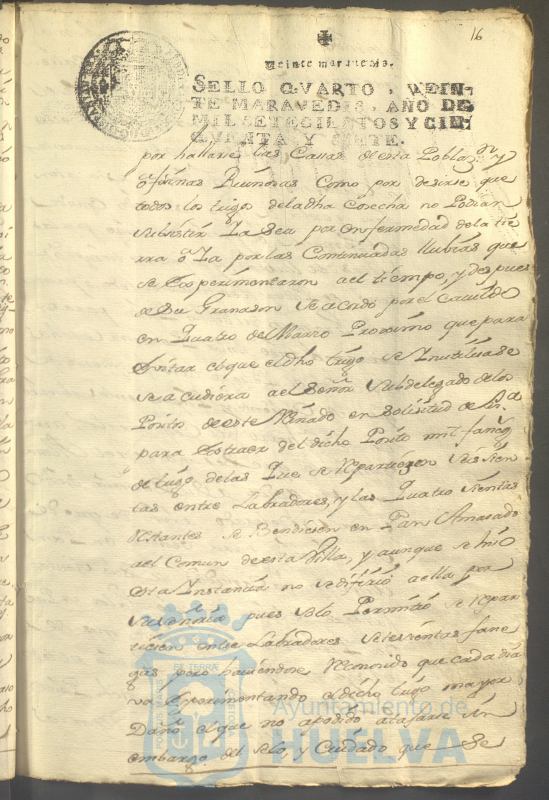 16
Veinte maravedis.
SELLO QVARTO, VEIN-
TE MARAVEDIS, AÑO DE
MIL SETECIENTOS Y CIN-
QVENTA Y SIETE.
por hallarse las Cassas de esta Poblazon y
ofisinas Ruinosas Como por desirse que
todos los trigos de la dha Cosecha no Podian
subsistir Ya sea por enfermedad de la tie
rra o Ya por las Continuadas llubias que
se Experimentaron a el tiempo, y despues
de su Granason se acordo por el Cavildo
en Quatro del Marzo Proximo que para
Evitar el que el dho trigo se Inutilisase
se acudiera a el Señor Subdelegado de los
Positos de este Reinado en solisitud de
para Extraer del dicho Posito mil fang
de trigo de las Que se Repartiesen seissien
tas entre Labradores, y las Quatro sientas
Restantes se Bendiesen en Pan Amasado
a el Comun de esta Villa, y aunque se hiso
esta Instancia no se difirio a ella por
su señoria pues solo Permitio se Repar
tiesen entre Labradores seissientas fane
gas pero haviendose Reconosido que cada dia
va Experimentando el dicho trigo mayor
Daño el que no a podido atajarse sin
embargo del selo, y Cuidado que se
Ayuntamiento de
HUELVA